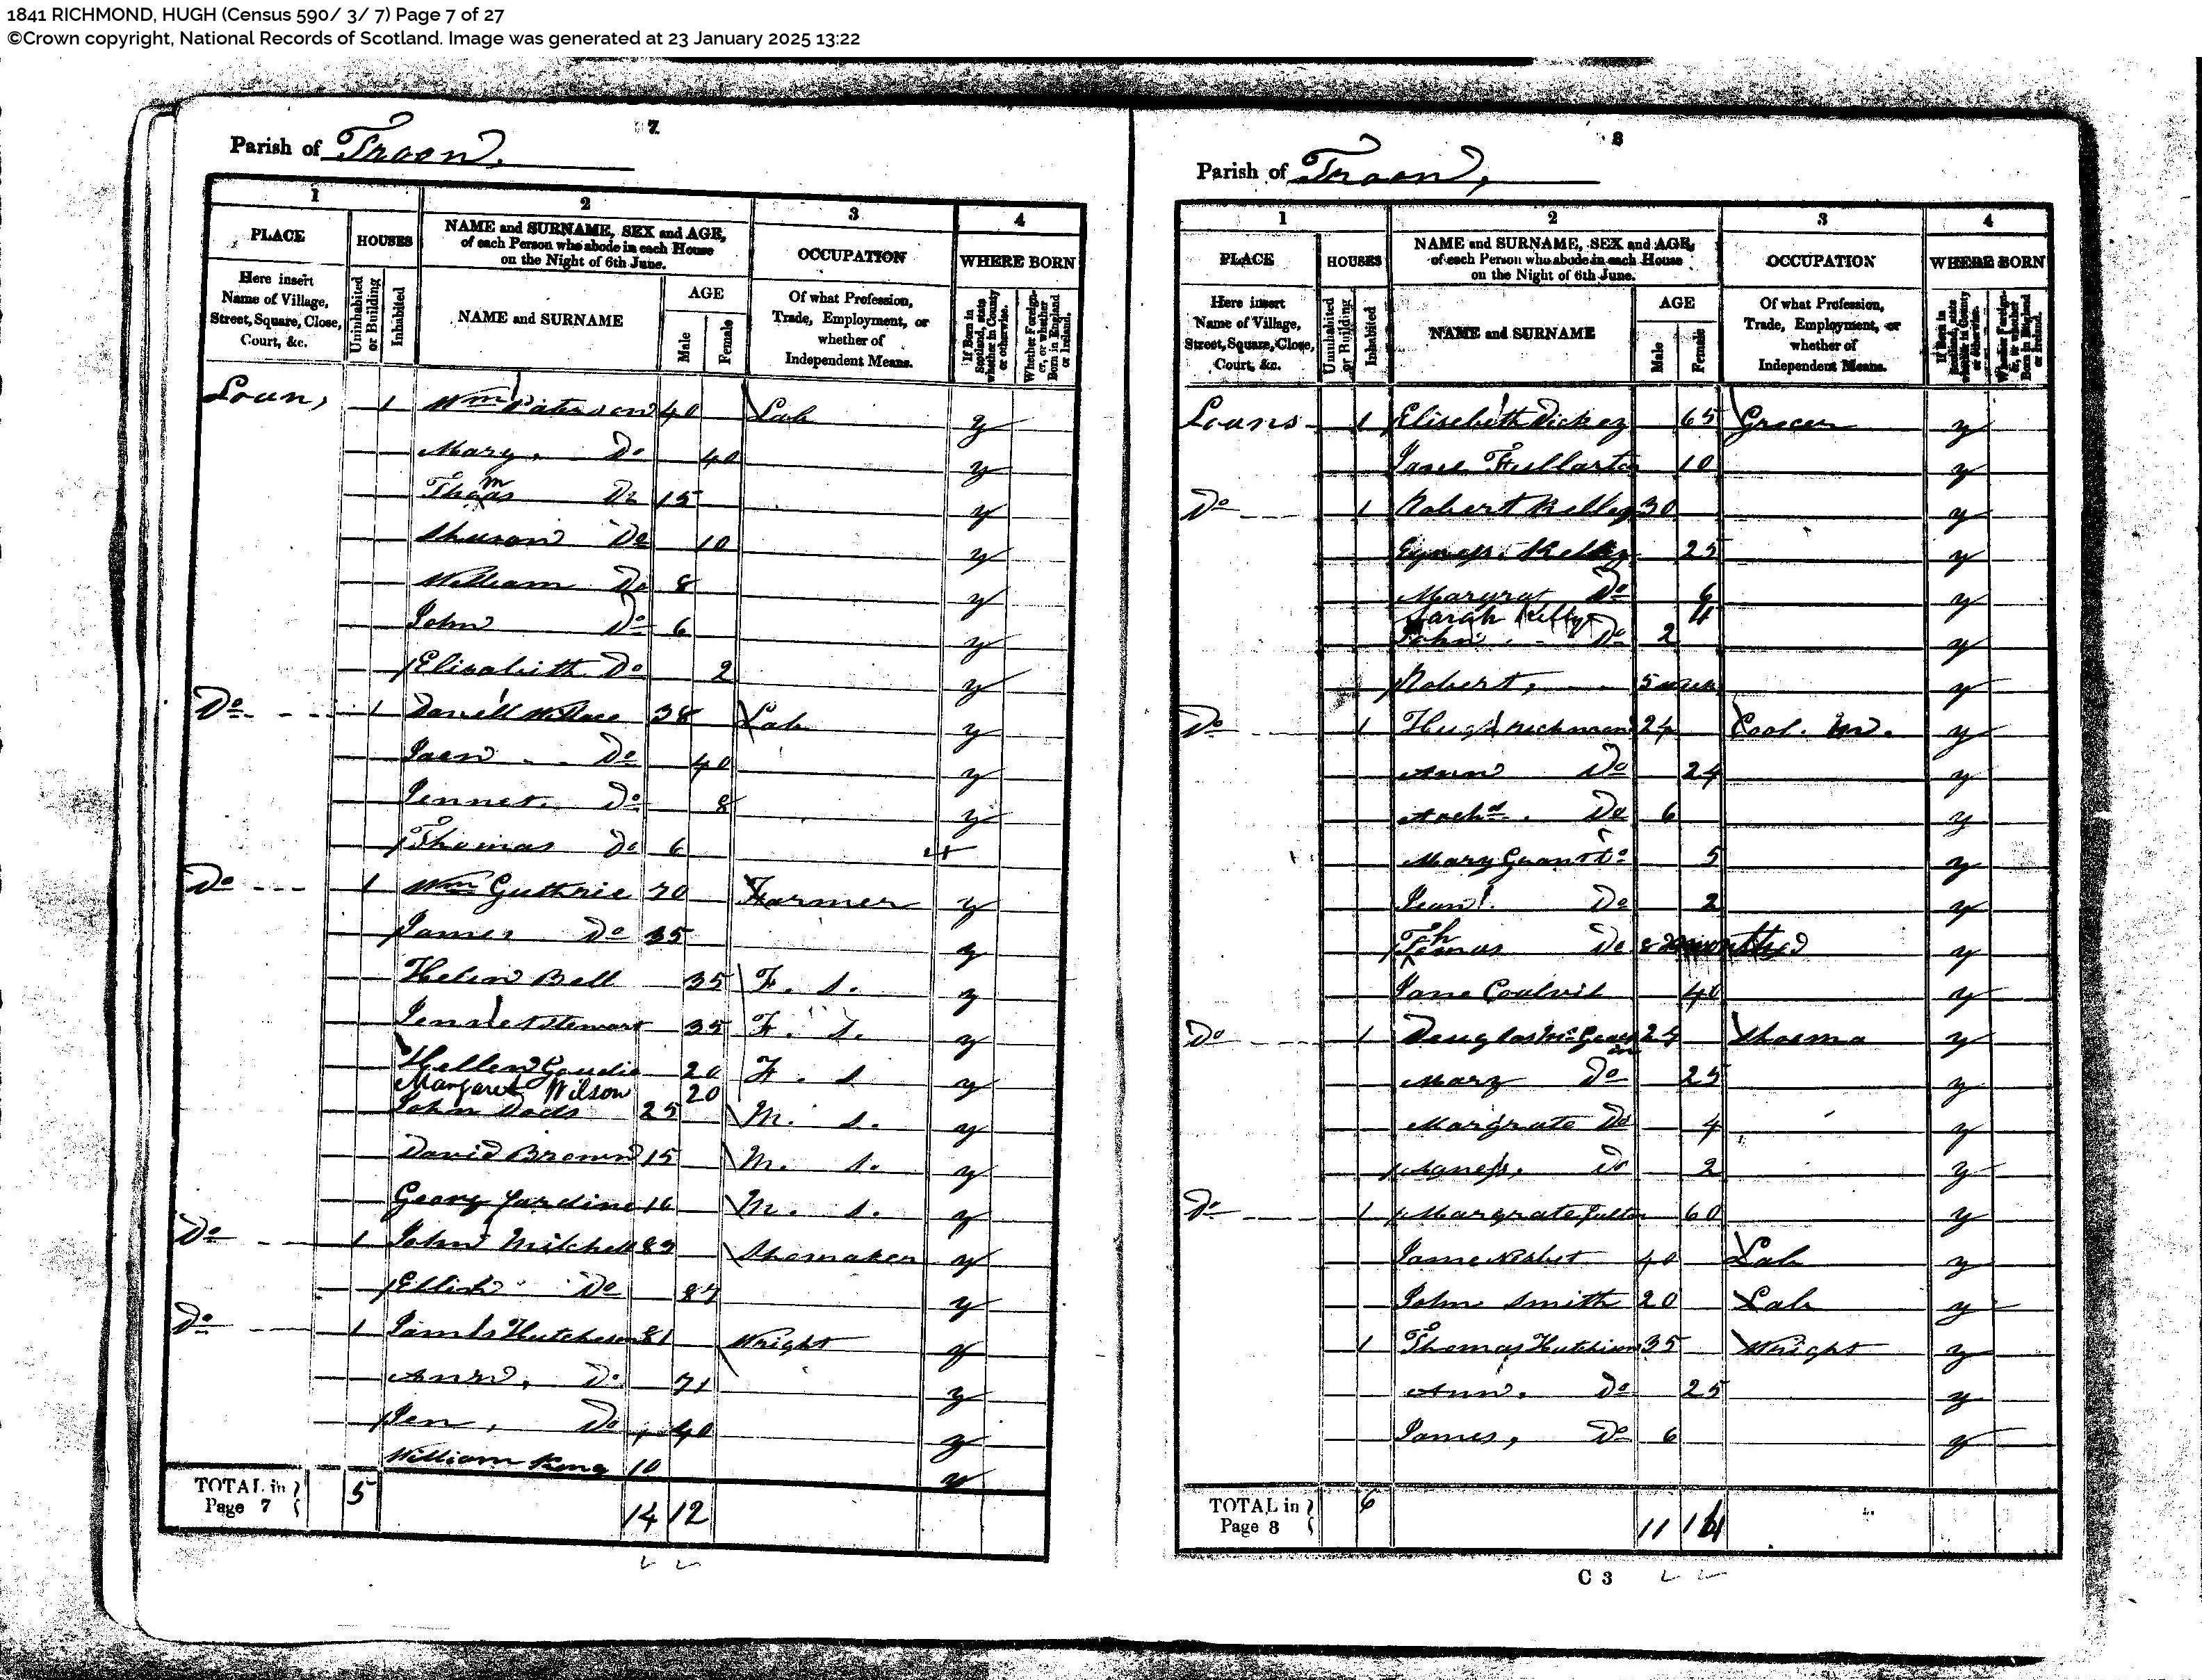 1841 RICHMOND, HUGH (Census 590/ 3/ 7) Page 7 of 27
©Crown copyright, National Records of Scotland. Image was generated at 23 January 2025 13:22
7
Parish of Troon.
1 2 3 4
PLACE HOUSES NAME and SURNAME, SEX and AGE, of each Person who abode in each House on the Night of 6th June. OCCUPATION WHERE BORN
Here insert Name of Village, Street, Square, Close, Court, &c. Uninhabited or Building Inhabited NAME and SURNAME AGE Male Female Of what Profession, Trade, Employment, or whether of Independent Means. If Born in Scotland, state whether in County or otherwise. Whether Foreigner, or whether Born in England or Ireland.
Loan, 1 Wm Paterson 40 Lab y
Mary. Do 40 y
Thomas Do 15 y
Do 10 y
William Do 8 y
John Do 6 y
Elisabeth Do 2 y
Do 1 Daniell Wallace 38 Lab y
Jaen Do 40 y
Jennet. Do 8 y
Thomas Do 6
Do 1 Wm Guthrie 70 Farmer y
James Do 35 y
Helen Bell 35 F. S. y
Jennet Stewart 35 F. S. y
Hellen Goudie 20 F. S y
Margaret Wilson 20
John Dods 25 M. S. y
David Brown 15 M. S. y
Georg Jardine 16 M. S. y
Do 1 John Mitchell 89 Shomaker y
Do 87 y
Do 1 James Hutcheson 81 Wright y
Ann, Do 71 y
Jen, Do 40 y
William King 10 y
TOTAL in Page 7 5 14 12
8
Parish of Troon,
1 2 3 4
PLACE HOUSES NAME and SURNAME, SEX and AGE, of each Person who abode in each House on the Night of 6th June. OCCUPATION WHERE BORN
Here insert Name of Village, Street, Square, Close, Court, &c. Uninhabited or Building Inhabited NAME and SURNAME AGE Male Female Of what Profession, Trade, Employment, or whether of Independent Means. If Born in Scotland, state whether in County or otherwise. Whether Foreigner, or whether Born in England or Ireland.
Loans 1 Elisebeth Dickey 65 Grocer y
Jane Fullarton 10 y
Do 1 Robert Kelley 30 y
Kelley 25 y
Margrat Do 6 y
Sarah Kelly 4
John Do 2 y
Robert, 5 week y
Do 1 Hugh Richmond 24 Cool. M. y
Ann Do 24 y
Archd. Do 6 y
Mary Grant Do 5 y
Jean Do 2 y
Thomas Do 8 months y
Jane 40 y
Do 1 Douglas 24 Shoema y
Mary Do 25 y
Margrate Do 4 y
Agness. Do 2 y
Do 1 Margrate Fulton 60 y
Jame Nisbet 40 Lab y
John Smith 20 Lab y
1 Thomas Hutchison 35 Wright y
Ann. Do 25 y
James, Do 6 y
TOTAL in Page 8 6 11 14
C 3